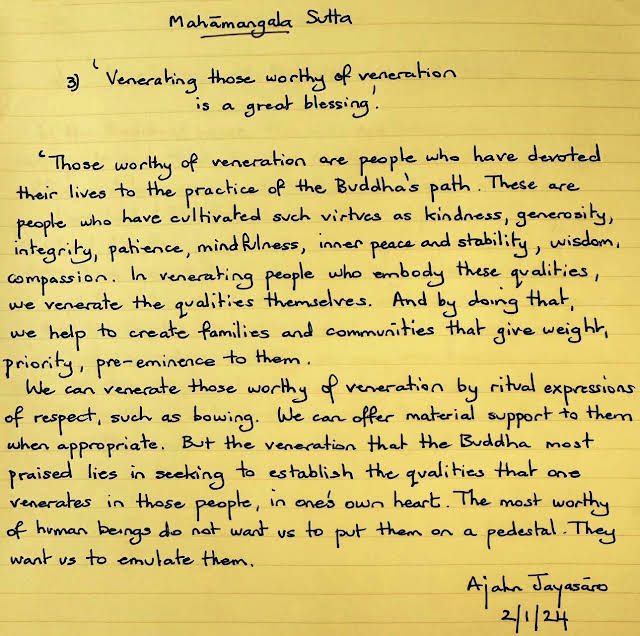 Mahāmangala Sutta
3) 'Venerating those worthy of veneration
is a great blessing'.
'Those worthy of veneration are people who have devoted
their lives to the practice of the Buddha's path. These are
people who have cultivated such virtues as kindness, generosity,
integrity, patience, mindfulness, inner peace and stability, wisdom,
compassion. In venerating people who embody these qualities,
we venerate the qualities themselves. And by doing that,
we help to create families and communities that give weight,
priority, pre-eminence to them.
We can venerate those worthy of veneration by ritual expressions
of respect, such as bowing. We can offer material support to them
when appropriate. But the veneration that the Buddha most
praised lies in seeking to establish the qualities that one
venerates in those people, in one's own heart. The most worthy
of human beings do not want us to put them on a pedestal. They
want us to emulate them.
Ajahn Jayasāro
2/1/24